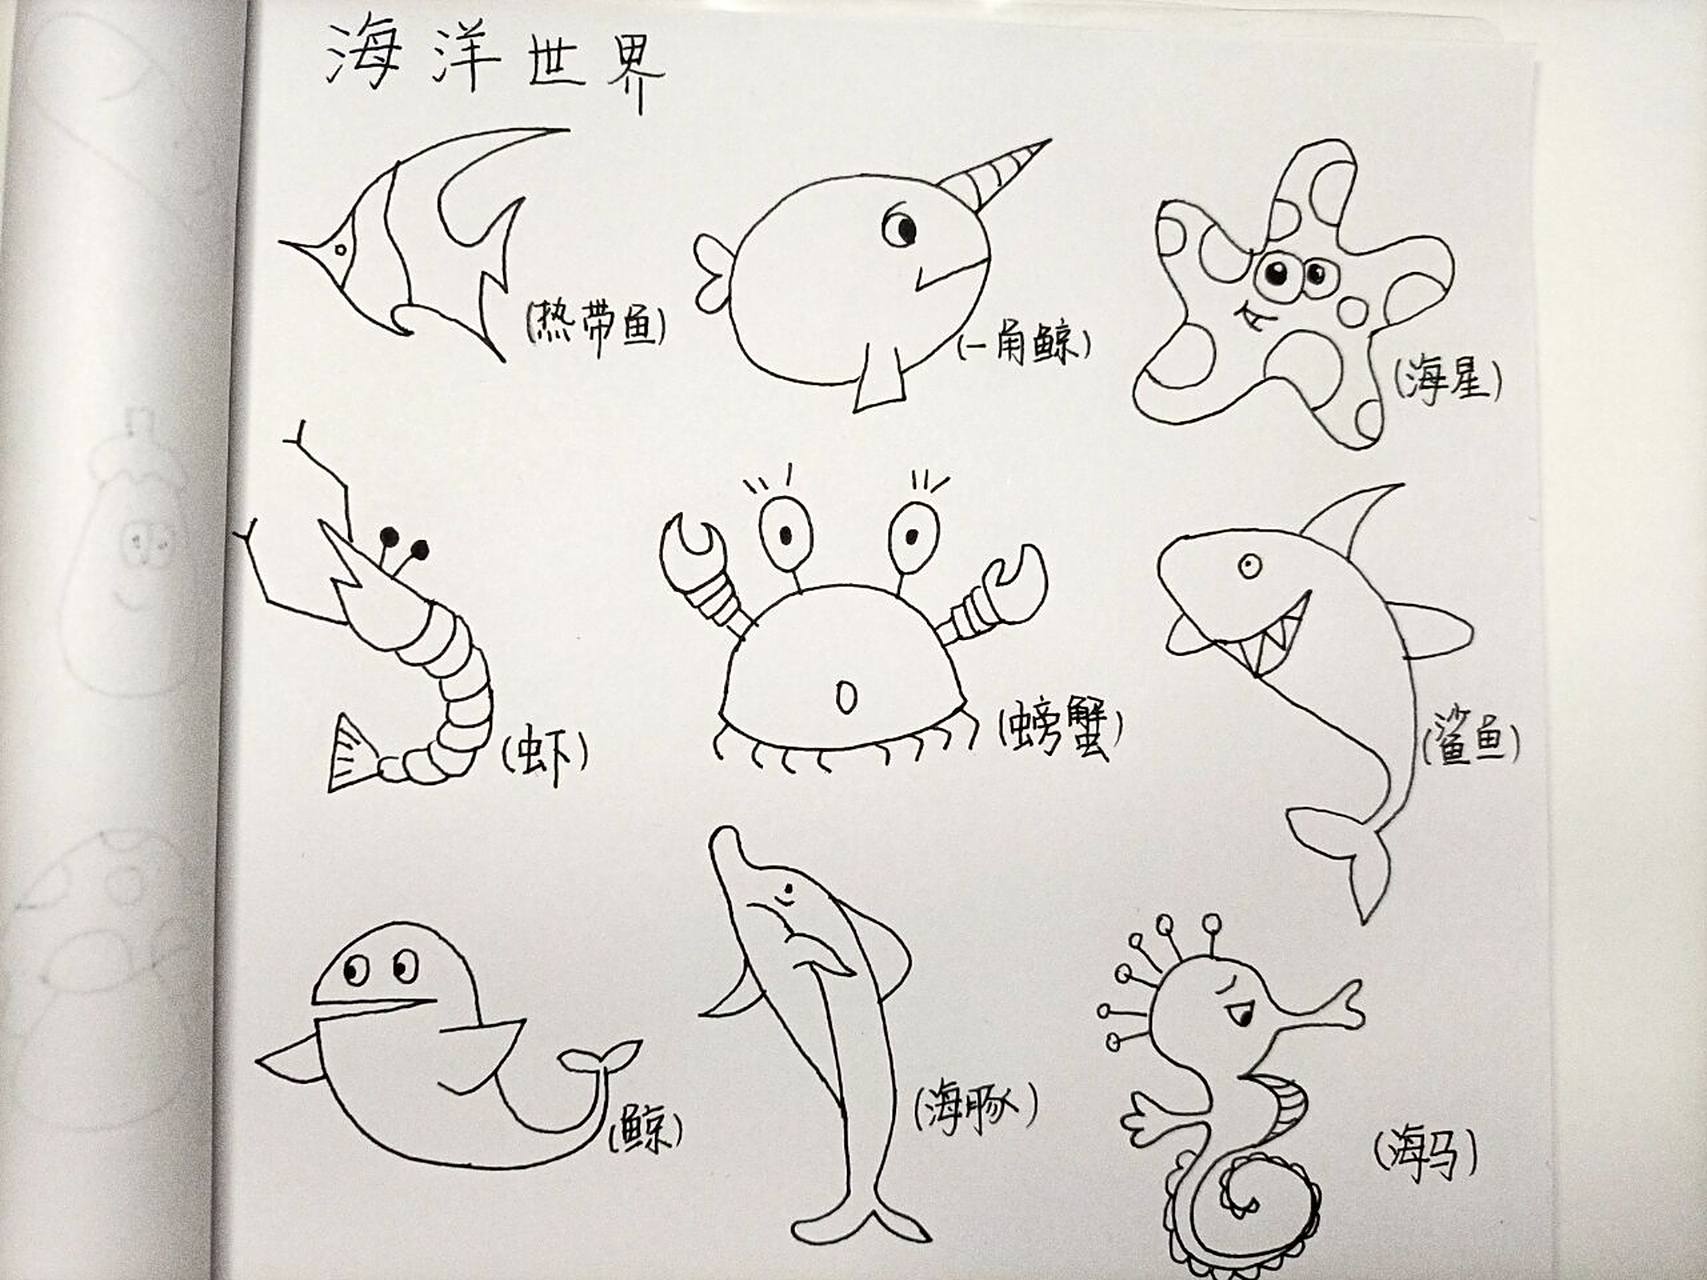 海洋世界
(热带鱼)
(一角鲸)
(海星)
(虾)
(螃蟹)
(鲨鱼)
(鲸)
(海豚)
(海马)